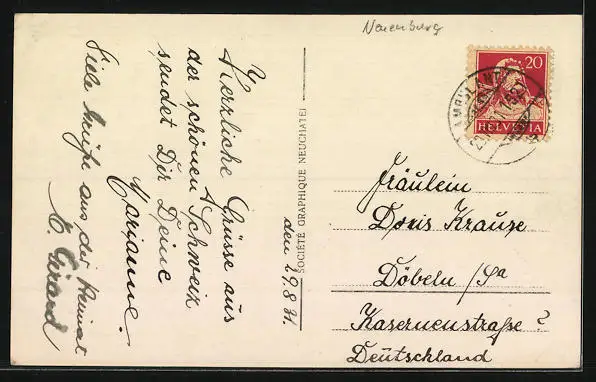 Neuenburg
20
HELVETIA
AMBULANT
Herzliche Grüsse aus
der schönen Schweiz
sendet Dir Deine
Marianne.
Viele Grüße aus der Heimat
E. Girard
den 29.8.31.
SOCIÉTÉ GRAPHIQUE NEUCHATEL
Fräulein
Doris Krause
Döbeln /Sa
Kasernenstraße 2
Deutschland